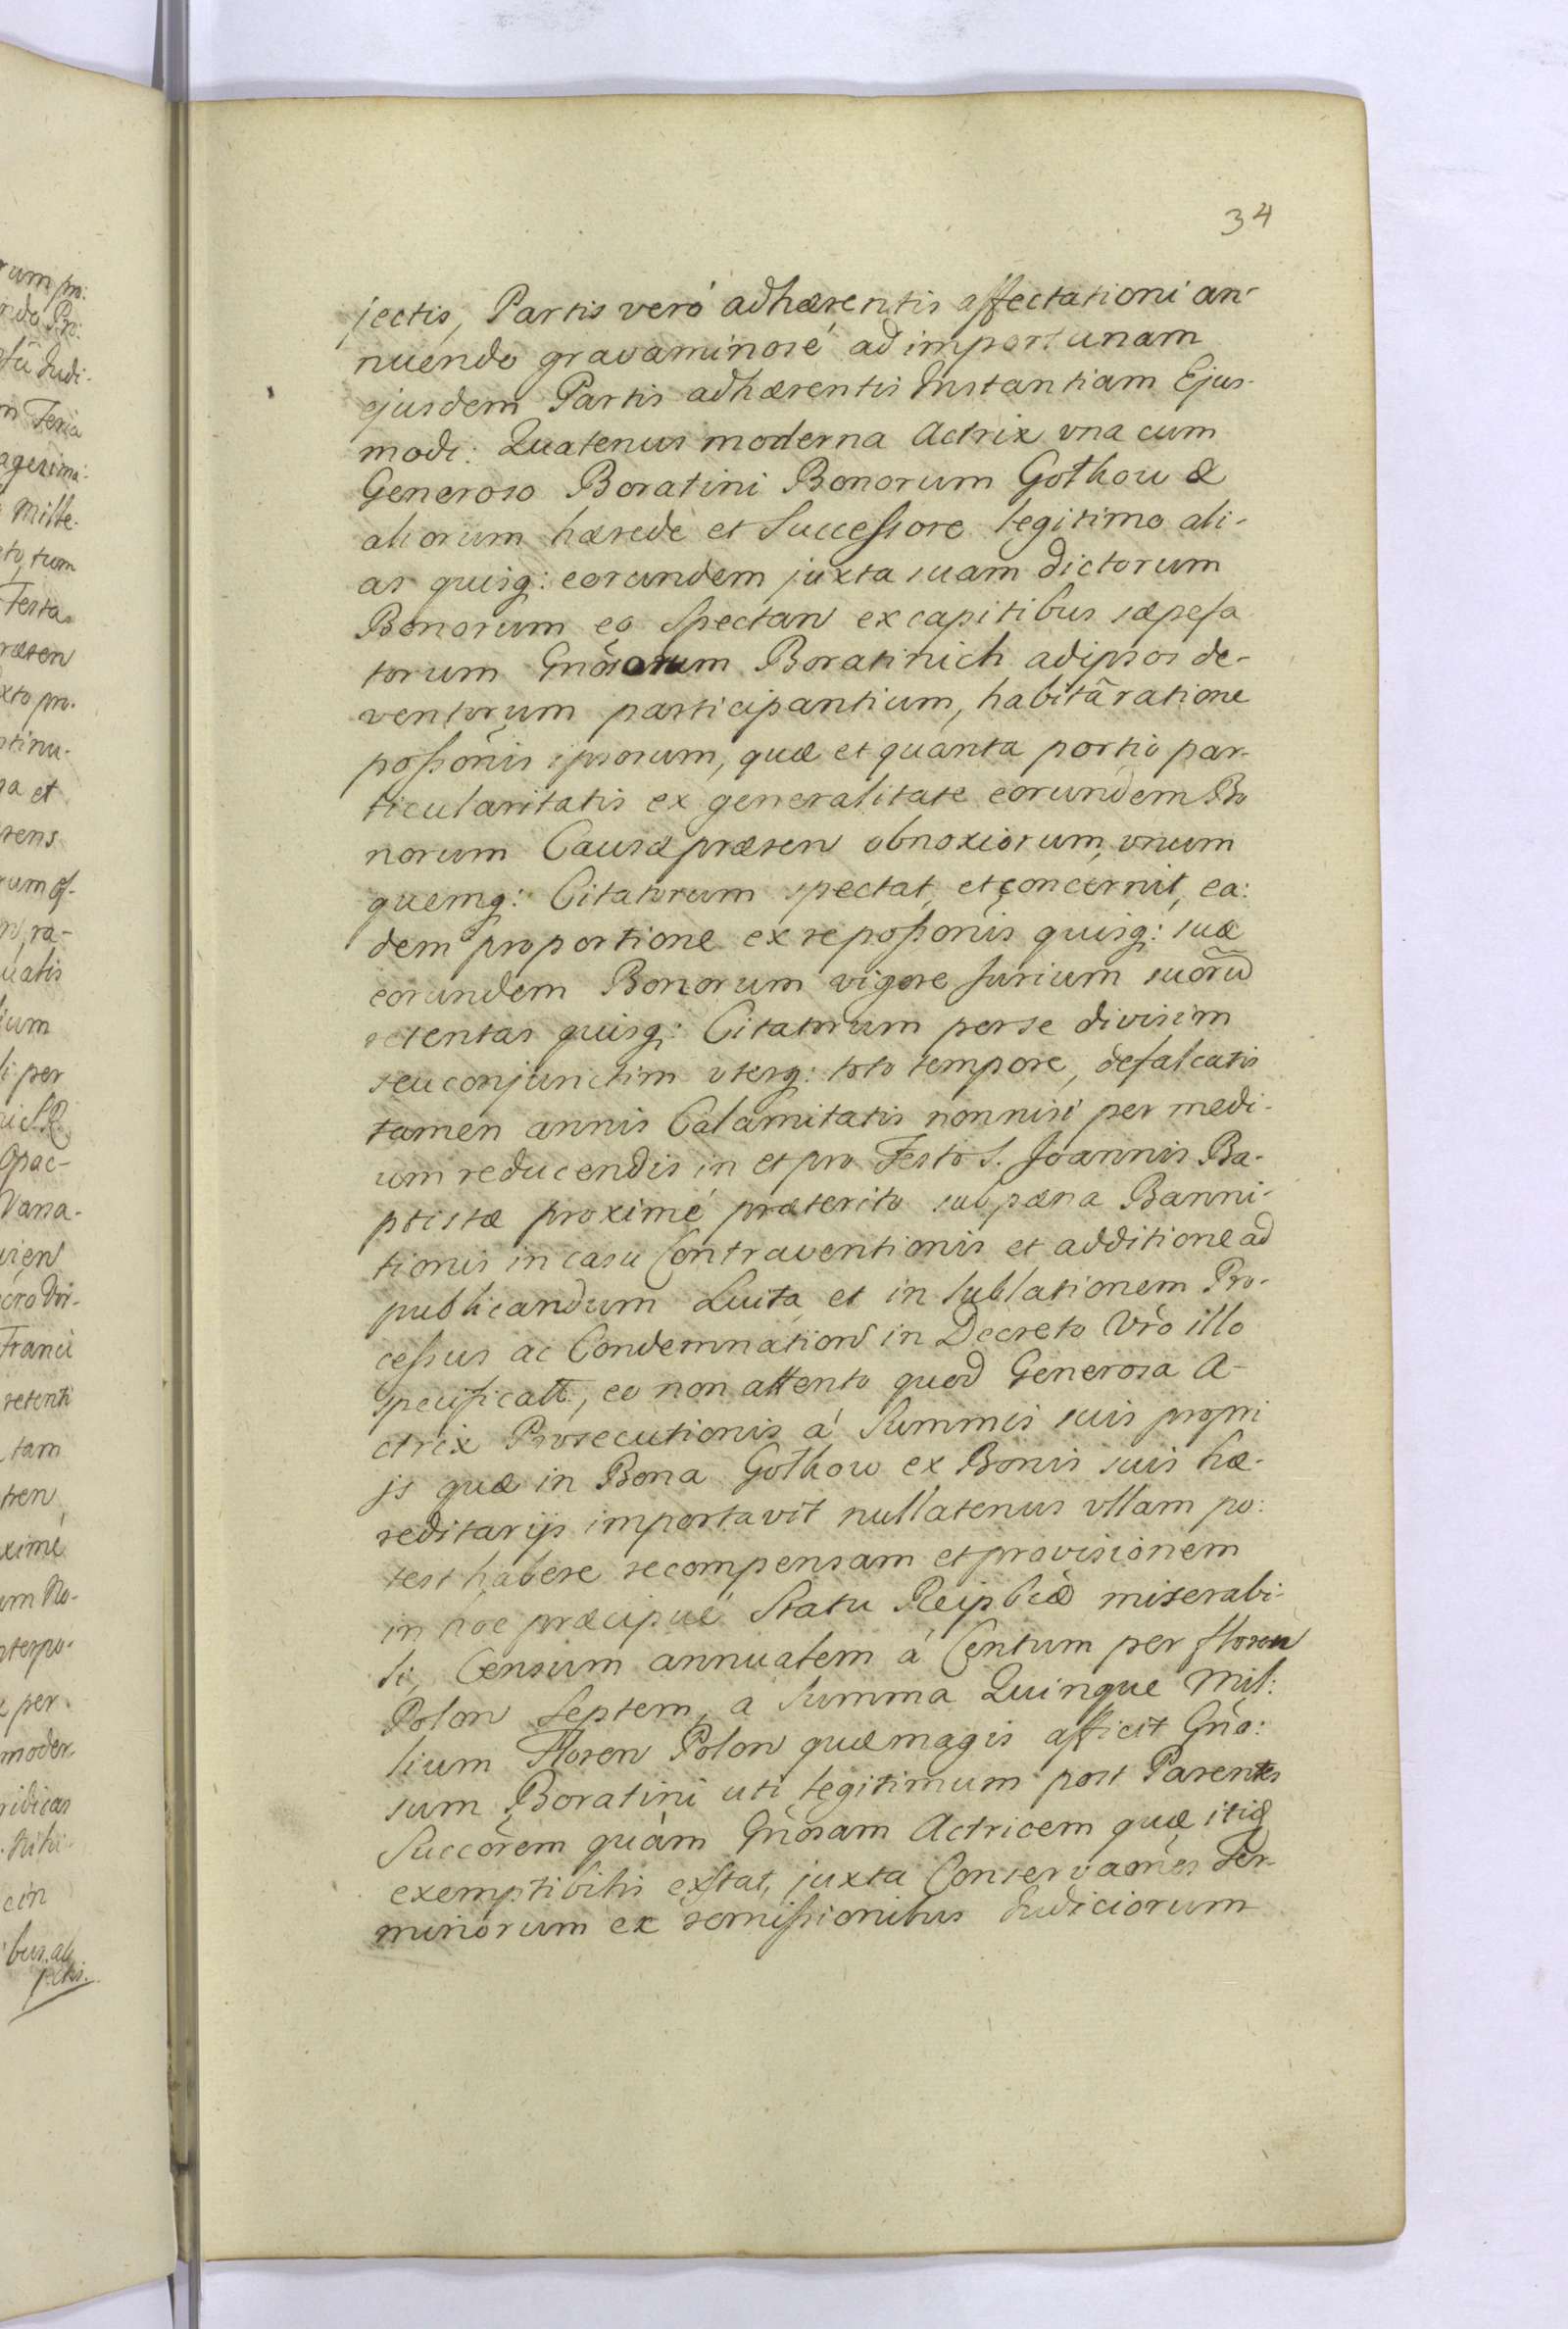 34
jectis, Partis veró adhærentis affectationi an-
nuendo gravaminosé ad importunam
ejusdem Partis adhærentis Instantiam Ejus-
modi: Quatenus moderna Actrix vna cum
Generoso Boratini Bonorum Gothow &
aliorum hærede et Successore legitimo ali-
as quisq: eorundem juxta suam dictorum
Bonorum eo Spectan ex capitibus sæpefa
torum Gnõsorum Boratinich ad ipsos de-
ventorum participantium, habitâ ratione
possõnis ipsorum, quæ et quanta portio par-
ticularitatis ex generalitate eorundem Bo
norum Causæ præsen obnoxiorum, vnum
quemq: Citatorum spectat, et concernit, ea:
dem proportione ex repossõnis quisq: suæ
eorundem Bonorum vigore Jurium suorũ
retentas quisq: Citatorum per se divisim
seu conjunctim vterq: toto tempore, defalcatis
tamen annis Calamitatis nonnisi per medi-
um reducendis in et pro Festo S. Joannis Ba-
ptistæ proximé præterito sub pæna Banni-
tionis in casu Contraventionis et additione ad
publicandum Luita et in sublationem Pro-
cessus ac Condemnation in Decreto Vrò illo
specificatt, eo non attento quod Generosa A-
ctrix Prosecutionis á Summis suis propri
js quæ in Bona Gothow ex Bonis suis hæ-
reditarijs importavit nullatenus vllam po:
test habere recompensam et provisionem
in hoc præcipué Statu Reiplicæ miserabi-
li, Censum annualem á Centum per floren
Polon Septem, a Summa Quinque Mil:
lium Floren Polon quæ magis afficit Gño:
sum Boratini uti legitimum post Parentes
Succõrem quàm Gñosam Actricem quæ itiđ
exemptibilis exstat, juxta Conservaões Ter-
minorum ex remissionibus Judiciorum